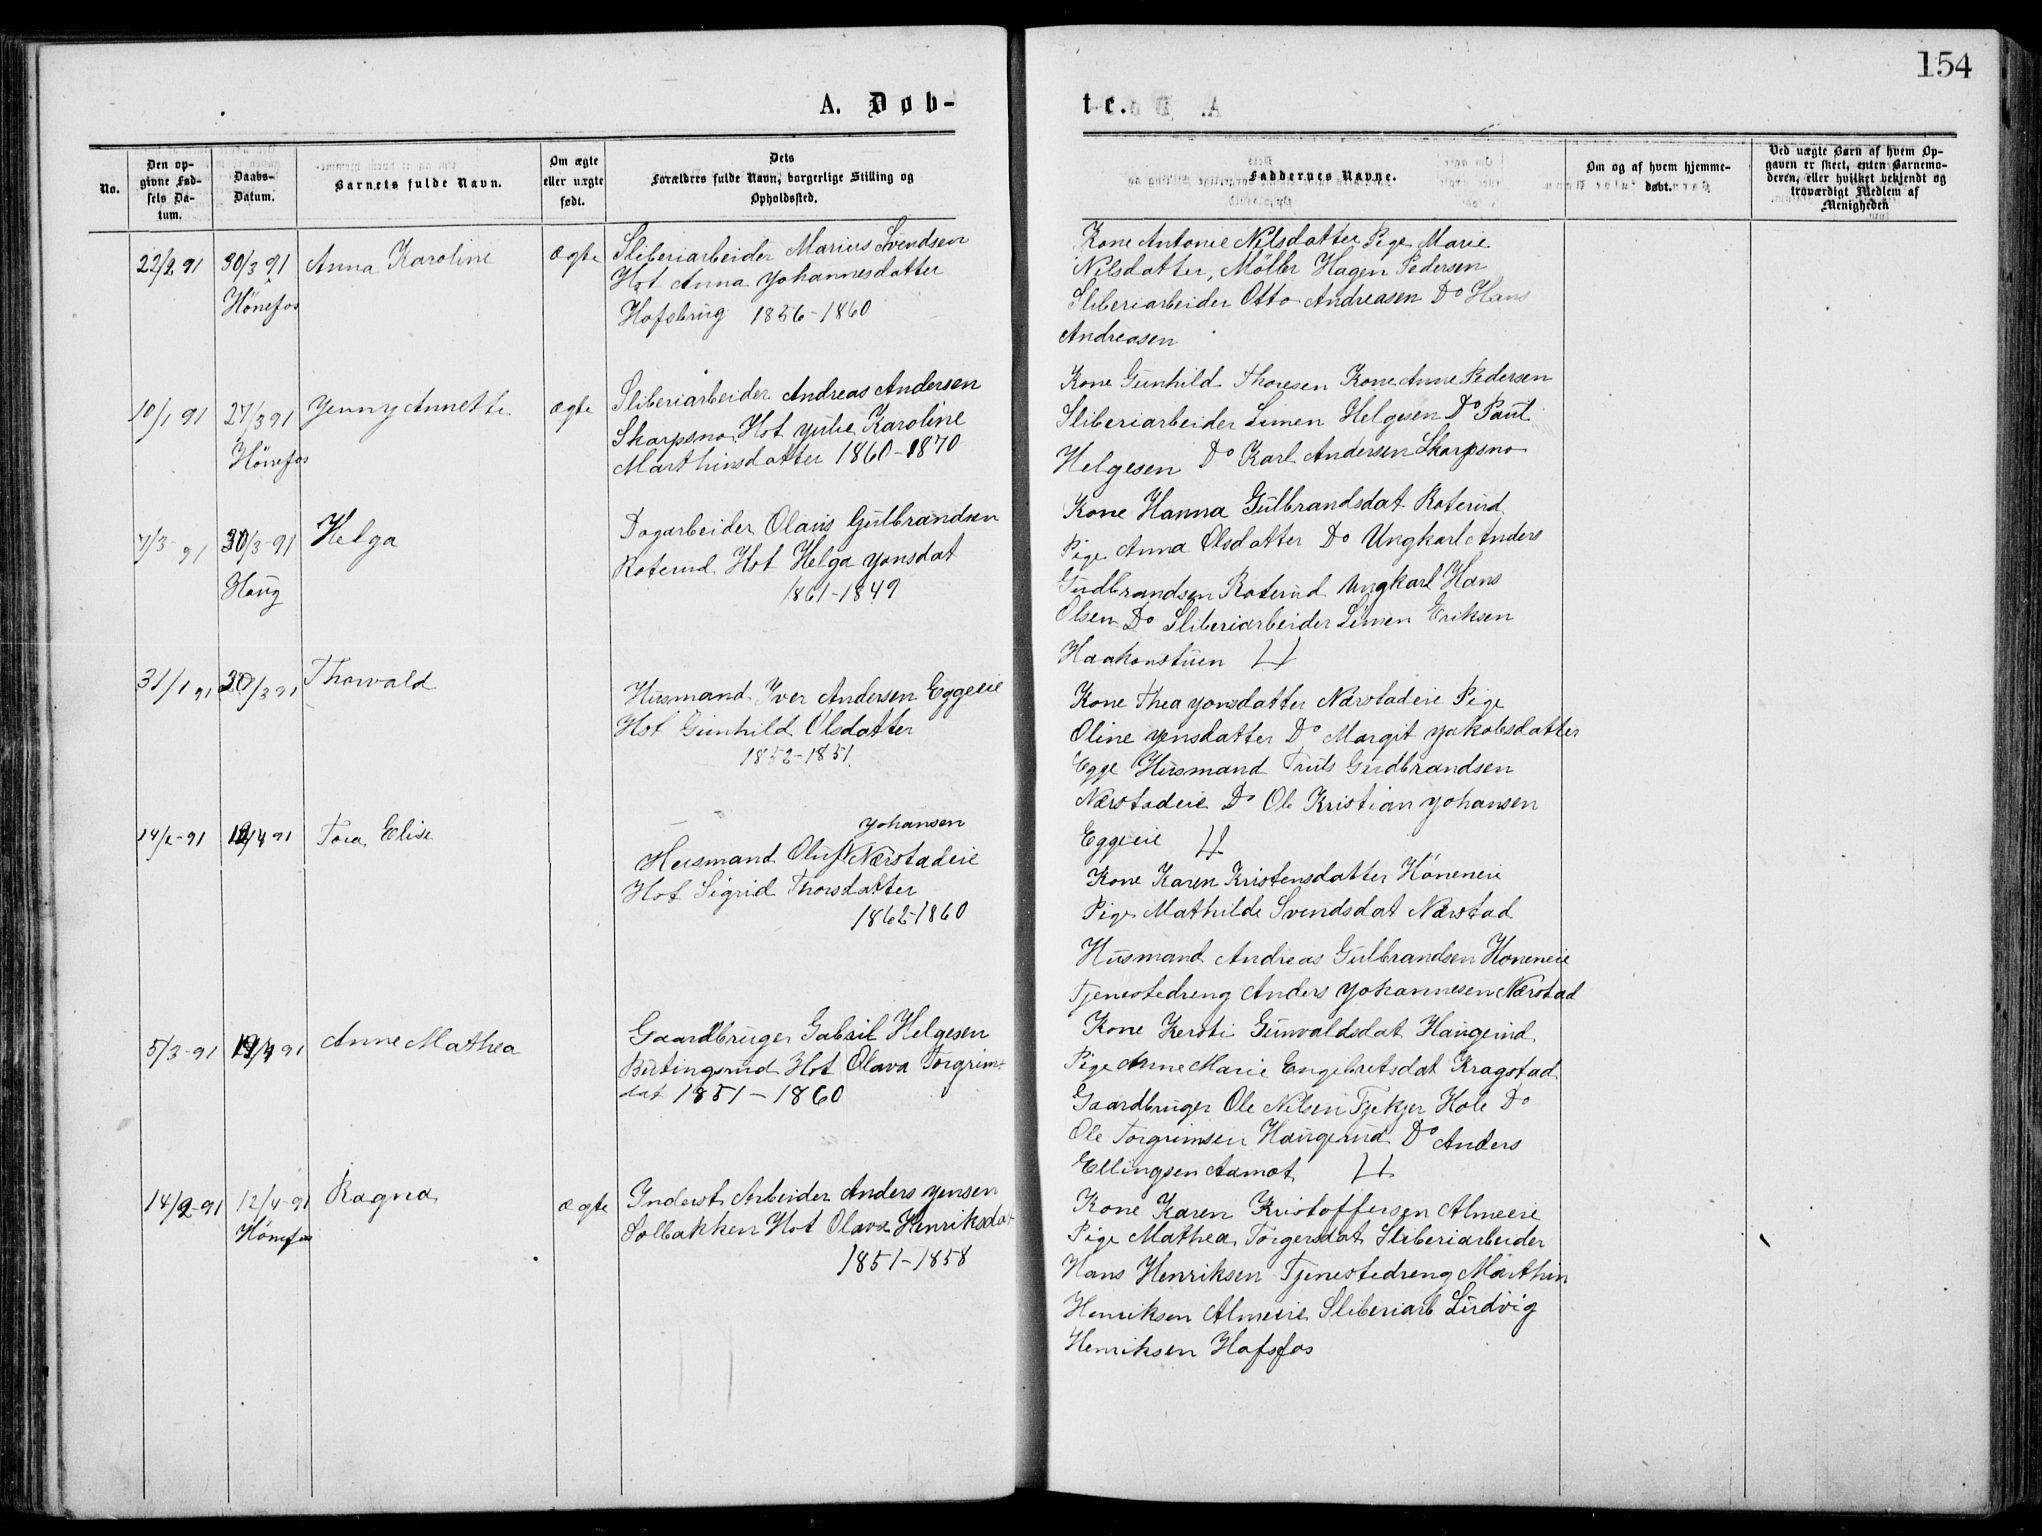 154
A. Døb-
te.
No.
Den op-
givne Fød-
sels Da-
tum.
Daabs-
Datum.
Barnets fulde Navn.
Om ægte
eller uægte
født.
Dets
Forældres fulde Navn, borgerlige Stilling og
Opholdssted.
Faddernes Navne.
Om og af hvem hjemme-
døbt.
Ved uægte Børn af hvem Op-
gaven er skeet, enten Barnemo-
deren, eller hvilket bekjendt og
troværdigt Medlem af
Menigheden
22/2 91 30/3 91 Anna Karoline ægte
Hönefos
Sliberiarbeider Marius Svendsen
Hot Anna Johannesdatter
Hofsbrug 1856-1860
Kone Antonie Nilsdatter Pige Marie
Nilsdatter, Möller Hagen Pedersen
Sliberiarbeider Otto Andreasen Do Hans
Andreasen
10/1 91 27/3 91 Jenny Annette ægte
Hönefos
Sliberiarbeider Andreas Andersen
Skarpsno Hot Julie Karoline
Marthinsdatter 1860-1870
Kone Gunhild Thoresen Kone Anne Pedersen
Sliberiarbeider Simen Helgesen Do Paul
Helgesen Do Karl Andersen Skarpsno
7/3-91 30/3-91 Helga
Houg
Dagarbeider Olaus Gulbrandsen
Roterud Hot Helga Jonsdat
1861-1849
Kone Hanna Gulbrandsdat Roterud
Pige Anna Olsdatter Do Ungkarl Anders
Gudbrandsen Roterud Ungkarl Hans
Olsen Do Sliberiarbeider Simen Eriksen
Haakonstuen
31/1 91 30/3 91 Thorvald
Husmand Iver Andersen Eggeeie
Hot Gunhild Olsdatter
1852-1851
Kone Thea Jonsdatter Nærstadeie Pige
Oline Jensdatter Do Margit Jakobsdatter
Egge Husmand Truls Gudbrandsen
Nærstadeie Do Ole Kristian Johansen
Eggeeie
14/2-91 12/4 91 Tora Elise
Johansen
Husmand Oluf Nærstadeie
Hot Sigrid Thorsdatter
1862-1860
Kone Karen Kristensdatter Höneneie
Pige Mathilde Svendsdat Nærstad
Husmand Andreas Gulbrandsen Honeneie
Tjenestedreng Anders Johannesen Nærstad
5/3-91 12/4 91 Anne Mathea
Gaardbruger Gabriel Helgesen
Butingsrud Hot Olava Torgrims
dat 1851-1860
Kone Kersti Gunvaldsdat Haugerud
Pige Anne Marie Engebretsdat Kragstad
Gaardbruger Ole Nilsen Fjeldjer Hole Do
Ole Torgrimsen Haugerud Do Anders
Ellingsen Aamot
14/2-91 12/4-91 Ragna ægte
Hönefos
Inderst Arbeider Anders Jensen
Solbakken Hot Olava Henriksdat
1851-1858
Kone Karen Kristoffersen Almeeie
Pige Mathea Torgersdat Sliberiarbeider
Hans Henriksen Tjenestedreng Marthin
Henriksen Almeeie Sliberiarb Ludvig
Henriksen Hofsfos